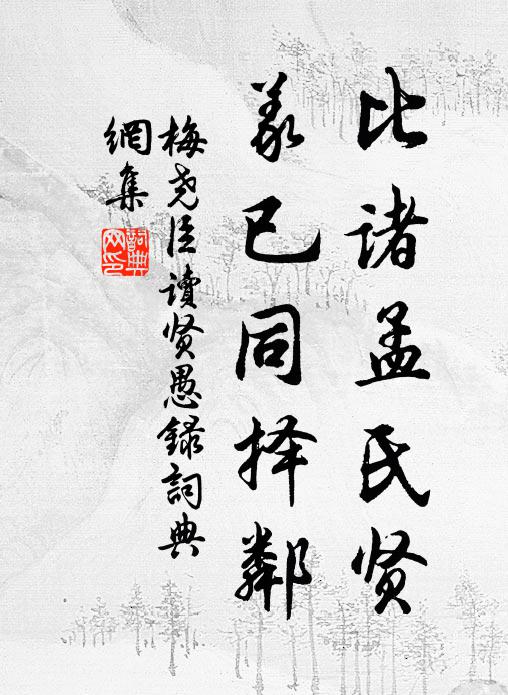 比诸孟氏贤
义已同择鄰
梅尧臣读贤愚録词典
網集
詞典网印